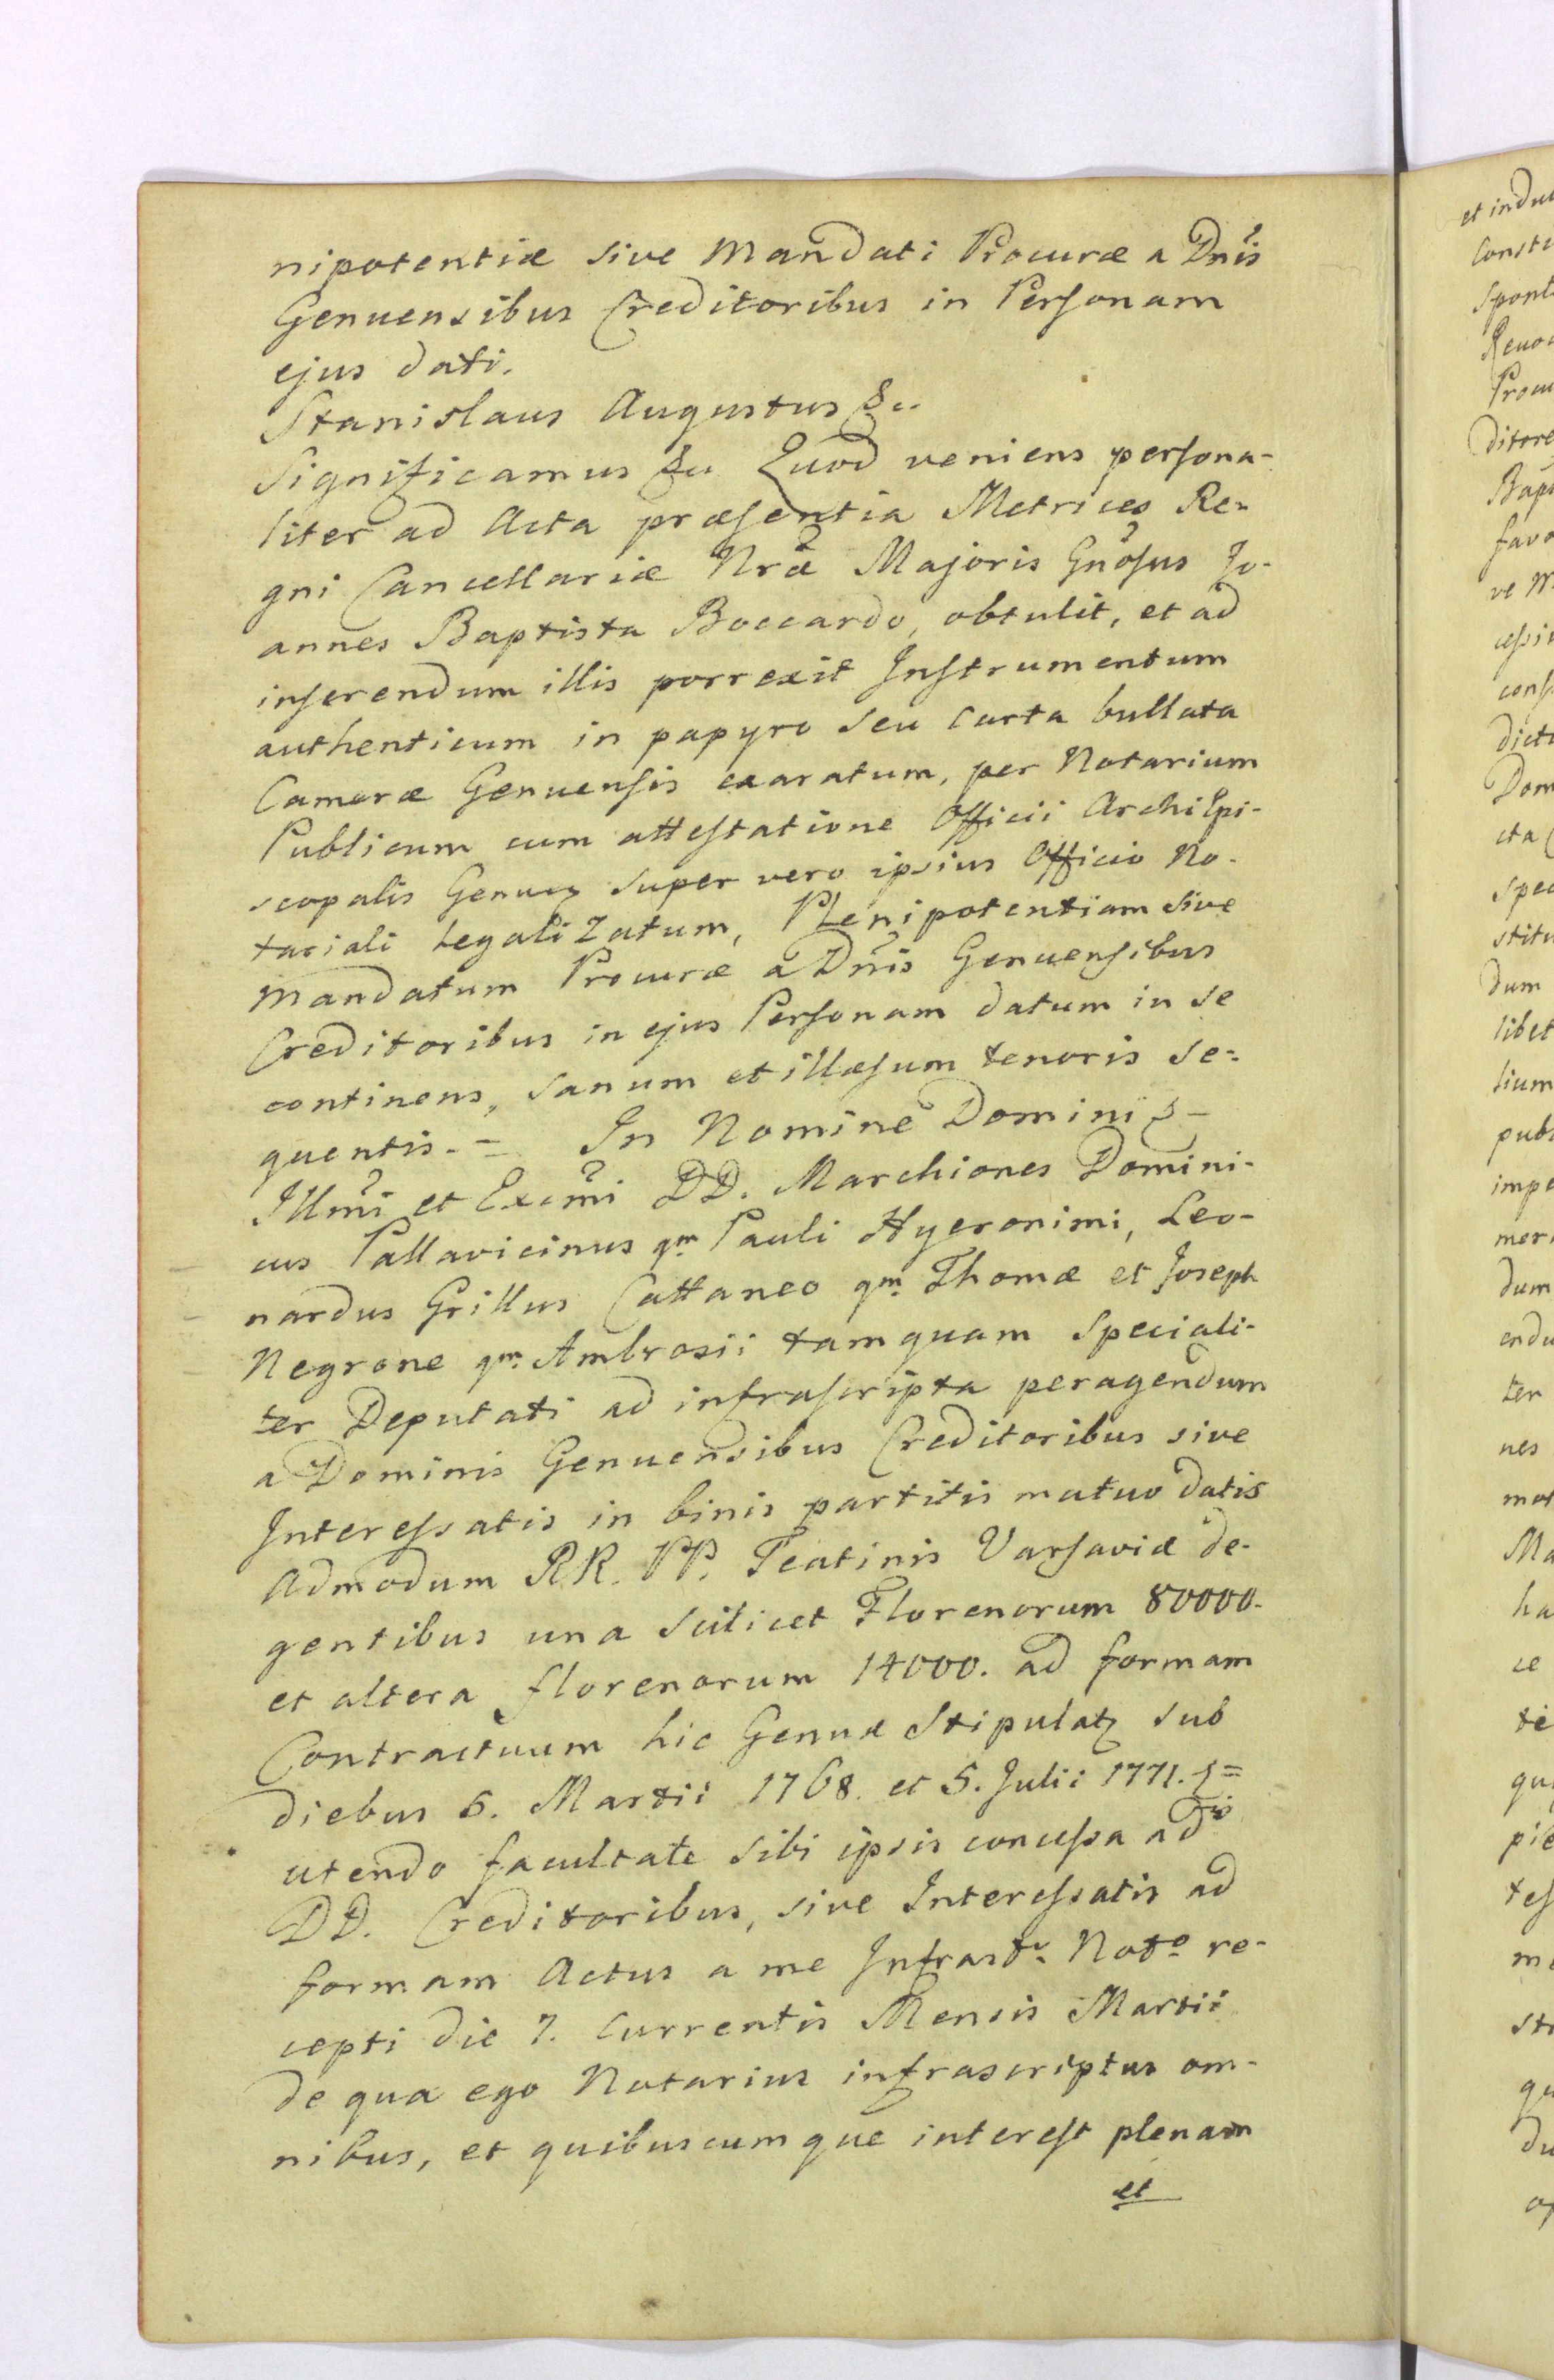 nipotentiæ sive Mandati Procuræ a Dnis
Genuensibus Creditoribus in Personam
ejus dati.
Stanislaus Augustus &c.
Significamus &c Quod veniens persona-
liter ad Acta præsentia Metrices Re-
gni Cancellariæ Nræ Majoris Gnosus Jo-
annes Baptista Boccardo, obtulit, et ad
inserendum illis porrexit Instrumentum
authenticum in papyro seu Carta bullata
Cameræ Genuensis exaratum, per Notarium
Publicum cum attestatione Officii ArchiEpi-
scopalis Genuen super vero ipsius Officio No-
tariali Legalizatum, Plenipotentiam sive
Mandatum Procuræ a Dnis Genuensibus
Creditoribus in ejus Personam datum in se
continens, sanum et illæsum tenoris se-
quentis. = In Nomine Domini
Illmi et Excmi DD. Marchiones Domini-
cus Pallavicinus qm Pauli Hyeronimi, Leo-
nardus Grillus Cattaneo qm. Thomæ et Joseph
Negrone qm. Ambrosii tamquam speciali-
ter Deputati ad infrascripta peragendum
a Dominis Genuensibus Creditoribus sive
Interessatis in binis partitis mutuo datis
Admodum RR. PP. Teatinis Varsaviæ de-
gentibus una scilicet Florenorum 80000.
et altera florenorum 14000. ad formam
Contractuum hic Genuæ Stipulat sub
diebus 5. Martii 1768. et 5. Julii 1771.
utendo facultate sibi ipsis concessa a dis
DD. Creditoribus, sive Interessatis ad
formam Actus a me Infrasto. Noto re-
cepti die 7. Currentis Mensis Martii
de qua ego Notarius infrascriptus om-
nibus, et quibuscumque interest plenam
et